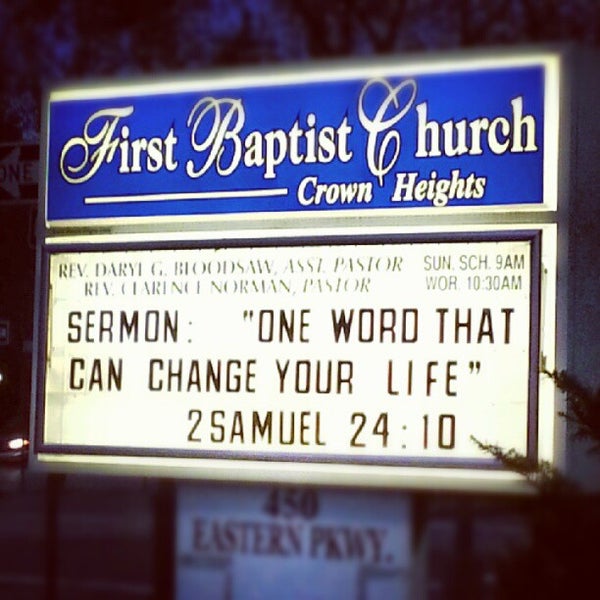 First Baptist Church
Crown Heights
REV. DARYL G. BLOODSAW, ASST. PASTOR SUN. SCH. 9AM
REV. CLARENCE NORMAN, PASTOR WOR. 10:30AM
SERMON: "ONE WORD THAT
CAN CHANGE YOUR LIFE"
2SAMUEL 24:10
450
EASTERN PKWY.
ONE